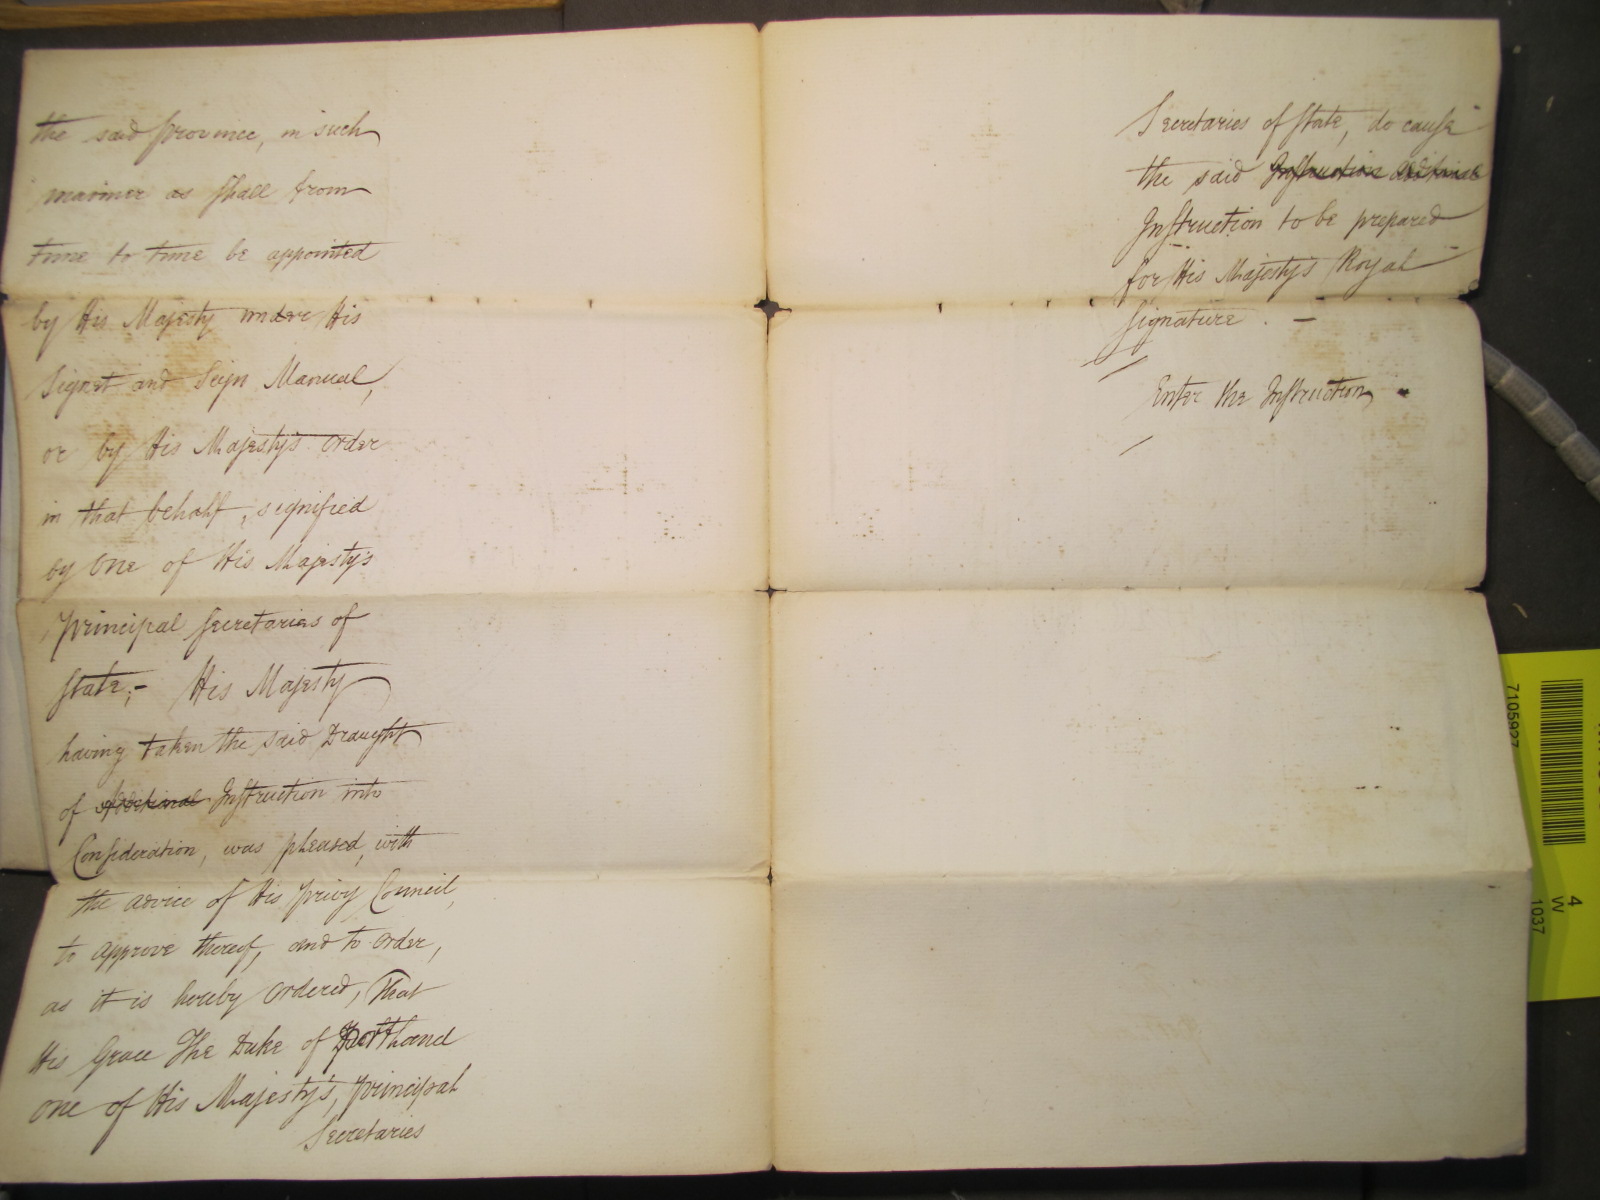 the said Province, in such
manner as shall from
time to time be appointed
by His Majesty under His
Signet and Sign Manual,
or by His Majesty's order
in that behalf, signified
by one of His Majesty's
Principal Secretaries of
State;- His Majesty
having taken the said Draught
of Additional Instruction into
Consideration, was pleased, with
the advice of His Privy Council,
to approve thereof, and to order,
as it is hereby ordered, That
His Grace The Duke of Portland
one of His Majesty's, Principal
Secretaries
Secretaries of State, do cause
the said Instruction additional
Instruction to be prepared
for His Majesty's Royal
Signature. -
Enter the Instruction
7105927
4
W
1037